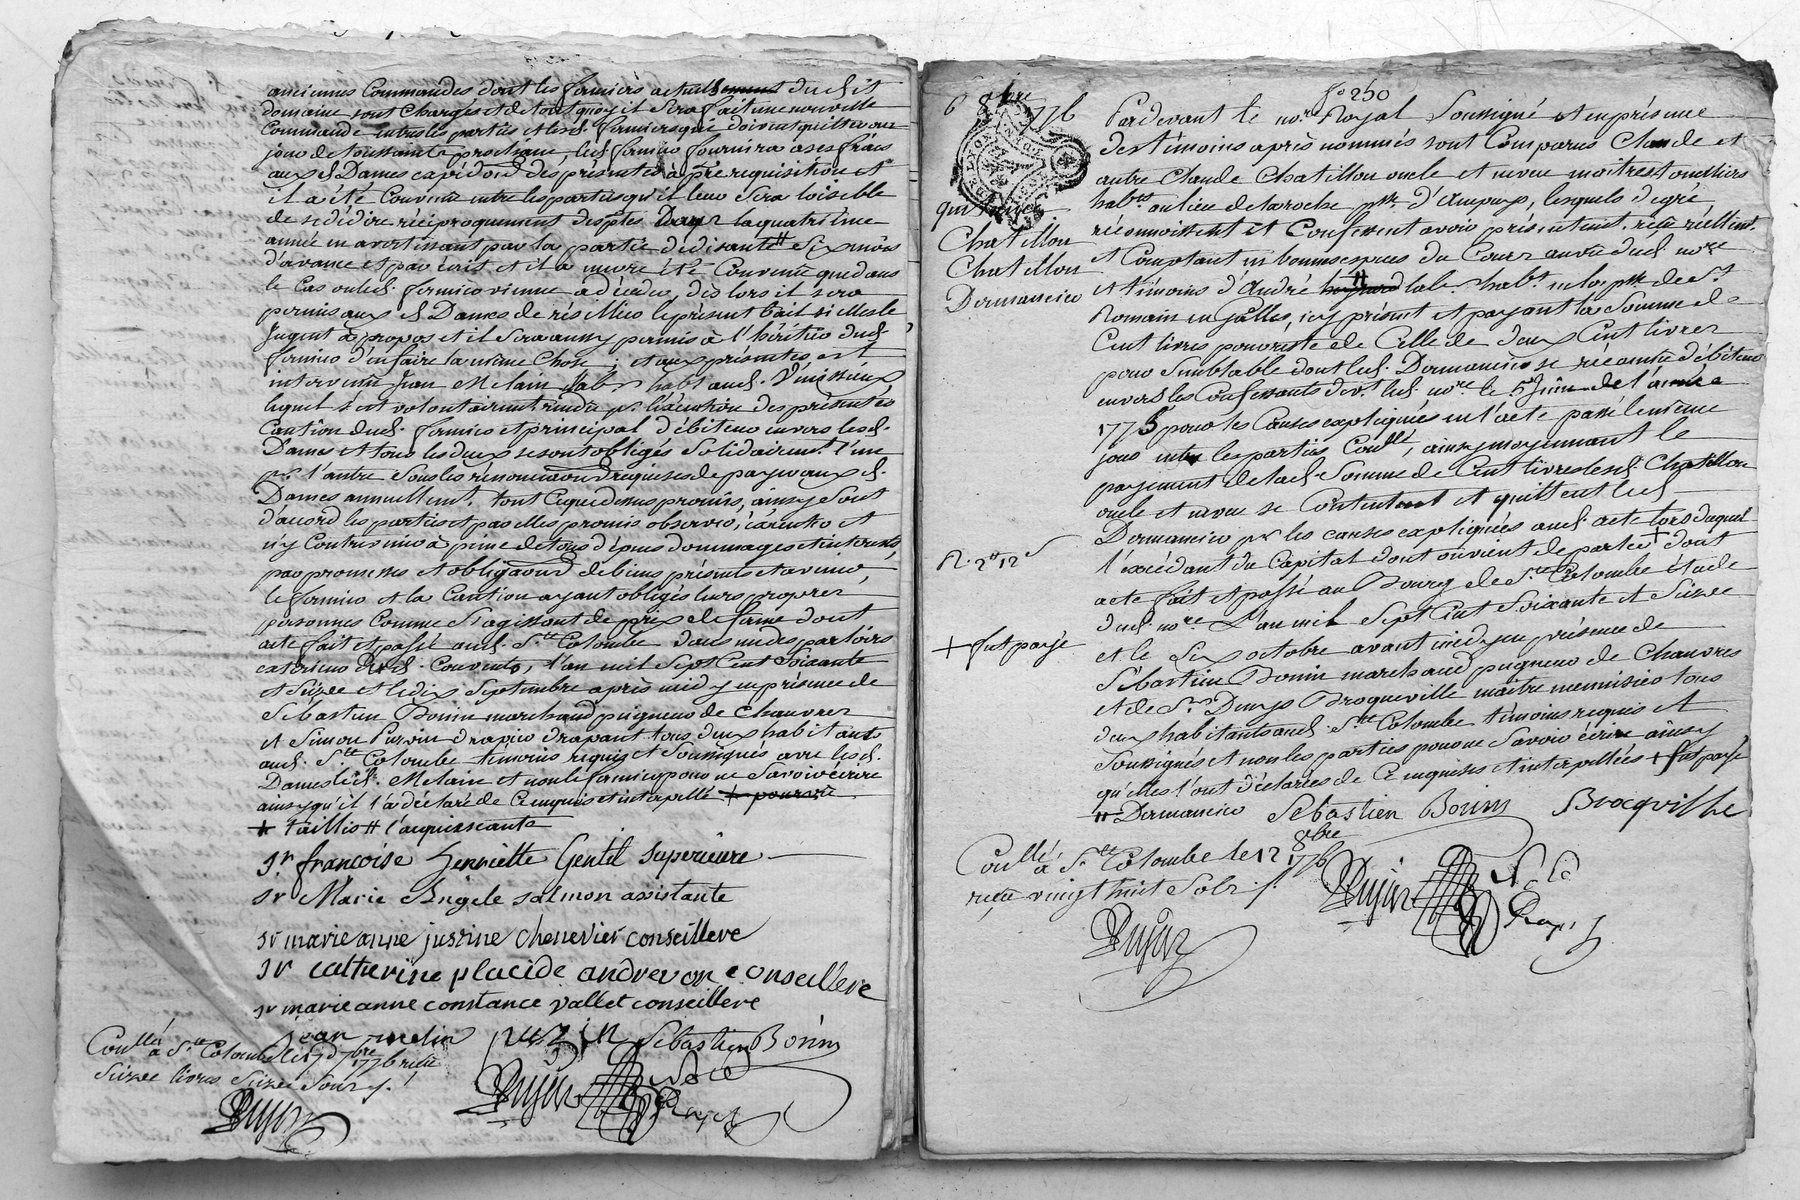 anciennes Commandes dont les fermiers actuellement dud. it
domaine sont Chargés et de tout quoy il sera fait une nouvelle
Commande entre les parties et lesd. fermiers qui doivent quitter au
jour de toussaints prochaine, led. fermier fournira a ses frais
aux d. Dames expéd.on des présentes à pre requisition et
il a été Convenu entre les parties qu'il leur sera loisible
de se dédire réciproquement desptes la quatrième
année en avertissant par la partie dédisante # Six mois
d'avance et par écrit et il a encore été Convenu que dans
le Cas ou led. fermier vienne a décéder, dès lors il sera
permis aux d. Dames de résillier le présent bail si elles le
Jugent à propos et il sera aussy permis à l'héritier dud.
fermier d'en faire la même Chose; et aux présentes est
intervenu Jean Melain lab.r habt. aud.
lequel s'est volontairemt. rendu pr. l'éxécution des présentes
Caution dud. fermier et principal débiteur envers lesd.
Dames et tous les deux se sont obligés Solidairemt. l'un
pr. l'autre Sous les renonciaons requises de payer aux d.
Dames annuellemt. tout ce que dessus promis, ainsy Sont
d'accord les parties et par elles promis observer, et
n'y Contrevenir à peine de tous dépens dommages et interests,
par promesses et obligaons de biens présents et avenir,
le fermier et la Caution ayant obligés leurs propres
personnes Comme S'agissant de prix de ferme dont
acte fait et passé aud. Ste. Colombe dans un des parloirs
exterieur dud. Couvent, l'an mil Sept Cent Soixante
et Seize et le dix Septembre après midy en présence de
Sébastien Bonin marchand peigneur de Chanvres
et Simon Purzin drapier drapant tous deux habitants
aud. Ste. Colombe témoins requis et Soussignés avec lesd.
Dames led. Melain et non le fermier pour ne Savoir écrire
ainsy qu'il l'a déclaré de Ce enquis et interpellé + pourvu
+ taillis # l'acquiessante
Sr. francoise henriette Gentil Superieure
Sr Marie Angele salmon assistante
Sr marie anne justine chenevier conseillere
Sr catherine placide andrevon conseillere
Sr marie anne constance vallet conseillere
jean melin purzin Sébastien Bonin
Coullé à Ste. Colombe le 17 7bre 1776 reçu
Seize livres Seize Sous
Dujar
Dujar No. Re
6 8bre 1776
fo 250
Pardevant le nore. Royal Soussigné et en présence
des témoins après nommés sont Comparus Claude et
autre Claude Chatillon oncle et neveu maitres tonelliers
habts. au lieu de la roche psse. d'Ampuy, lesquels de gré,
réconnoissent et Confessent avoir présentemt. reçu réellemt.
et Comptant en bonnes espèces du Cours au vû dud. nore
et témoins d'André # lab.r habt. en la psse de St.
Romain en Galles, icy présent et payant la Somme de
Cent livres pour reste de Celle de deux Cent livres
pour Semblable dont led. Dermancier se reconnu débiteur
envers les Confessants devt. led. nore. le 5 Juin de l'année
1775 pour les Causes expliquées en l'acte passé le même
jour entre les parties Coullé, ainsy moyennant le
payement de lad. Somme de Cent livres lesd. Chatillon
oncle et neveu se Contentent et quittent led.
Dermancier pr. les causes expliquées aud. acte lors duquel
l'éxcédant du Capital dont on vient de parler + dont
acte fait et passé au Bourg de Ste. Colombe étude
dud. nore. L'an mil Sept Cent Soixante et Seize
et le Six octobre avant midy en présence de
Sébastien Bonin marchand peigneur de Chanvres
et de Sr. Denys Broqueville maitre menuisier tous
deux habitants aud. Ste. Colombe témoins requis et
Soussignés et non les parties pour ne Savoir écrire ainsy
qu'elles l'ont déclarées de Ce enquises et interpellées + fut payé
# Dermancier Sébastien Bonin Brocqville
quittance
Chatillon
Chatillon
Dermancier
+ fut payé
Coullé à Ste. Colombe le 12 8bre 1776
reçu vingt huit Sols
Dujar
Dujar No. Re